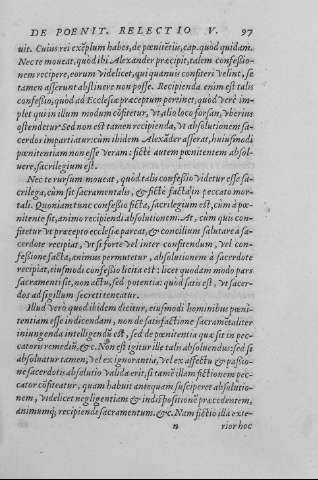 DE POENIT. RELECTIO V. 97
uit. Cuius rei exẽplum habes, de pœnitẽtijs, cap. quod quidam.
Nec te moueat, quod ibi Alexander præcipit, talem confeßio-
nem recipere, eorum videlicet, qui quanuis confiteri velint, se
tamen asserunt abstinere non posse. Recipienda enim est talis
confeßio, quod ad Ecclesiæ præceptum pertinet, quod verè im-
plet qui in illum modum cõfitetur, vt alio loco forsan, vberius
ostendetur. Sed non est tamen recipienda, vt absolutionem sa-
cerdos impartiatur: cùm ibidem Alexãder asserat, huiusmodi
pœnitentiam non esse veram: fictè autem pœnitentem absol-
uere, sacrilegium est.
Nec te rursum moueat, quòd talis confeßio videtur esse sa-
crilega, cùm sit sacramentalis, & fictè facta, in peccato mor-
tali. Quoniam tunc confeßio ficta, sacrilegium est, cùm à pœ-
nitente fit, animo recipiendi absolutionem. At, cùm quis con-
fitetur vt præcepto ecclesiæ parcat, & consilium salutare a sa-
cerdote recipiat, vt si forte vel inter confitendum, vel con-
feßione facta, animus permutetur, absolutionem à sacerdote
recipiat, eiusmodi confeßio licita est: licet quodam modo pars
sacramenti sit, non actu, sed potentia: quod satis est, vt sacer-
dos ad sigillum secreti teneatur.
Illud verò quod ibidem dicitur, eiusmodi hominibus pœni-
tentiam esse indicendam, non de satisfactione sacramẽtaliter
iniungenda intelligendũ est, sed de pœnitentia quæ sit in pec-
catorũ remediũ, &c. Nõ est igitur ille talis absoluendus: sed si
absoluatur tamen, vel ex ignorantia, vel ex affectu & paßio-
ne sacerdotis absolutio valida erit, si tamẽ illam fictionem pec-
cator cõfiteatur, quam habuit antequam susciperet absolutio-
nem, videlicet negligentiam & indispositionẽ præcedentem,
animumq́; recipiendi sacramentum. &c. Nam fictio illa exte-
n rior hoc